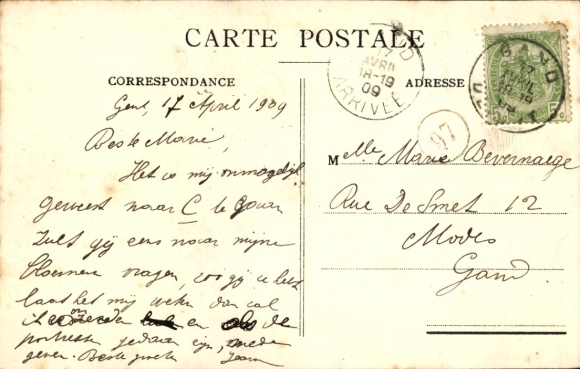 CARTE POSTALE
CORRESPONDANCE
ADRESSE
GAND
17
AVRIL
18-19
09
ARRIVÉE
GAND
17
AVRIL
18-19
09
97
Gent, 17 April 1909
Beste Marie,
Het is mij onmogelijk
geweest naar C te gaan
Zult gij eens naar mijne
bloemen vragen, zoo gij ze hebt
laat het mij weten dan zal
ik ze zenden en als de
portretten gedaan zijn, mede
geven. Beste groeten
Melle Marie Bevernaege
Rue De Smet 12
Modes
Gand